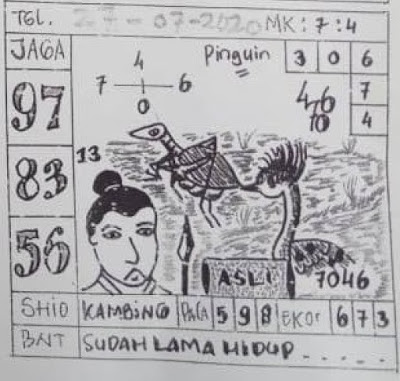 TGL. 27-07-2020 MK: 7:4
JAGA
97
83
56
4
7 6
0
Pinguin
3 0 6
7
4
4,6
10
13
ASLI
7046
SHIO KAMBING PALA 5 9 8 EKOR 6 7 3
BNT SUDAH LAMA HIDUP.....